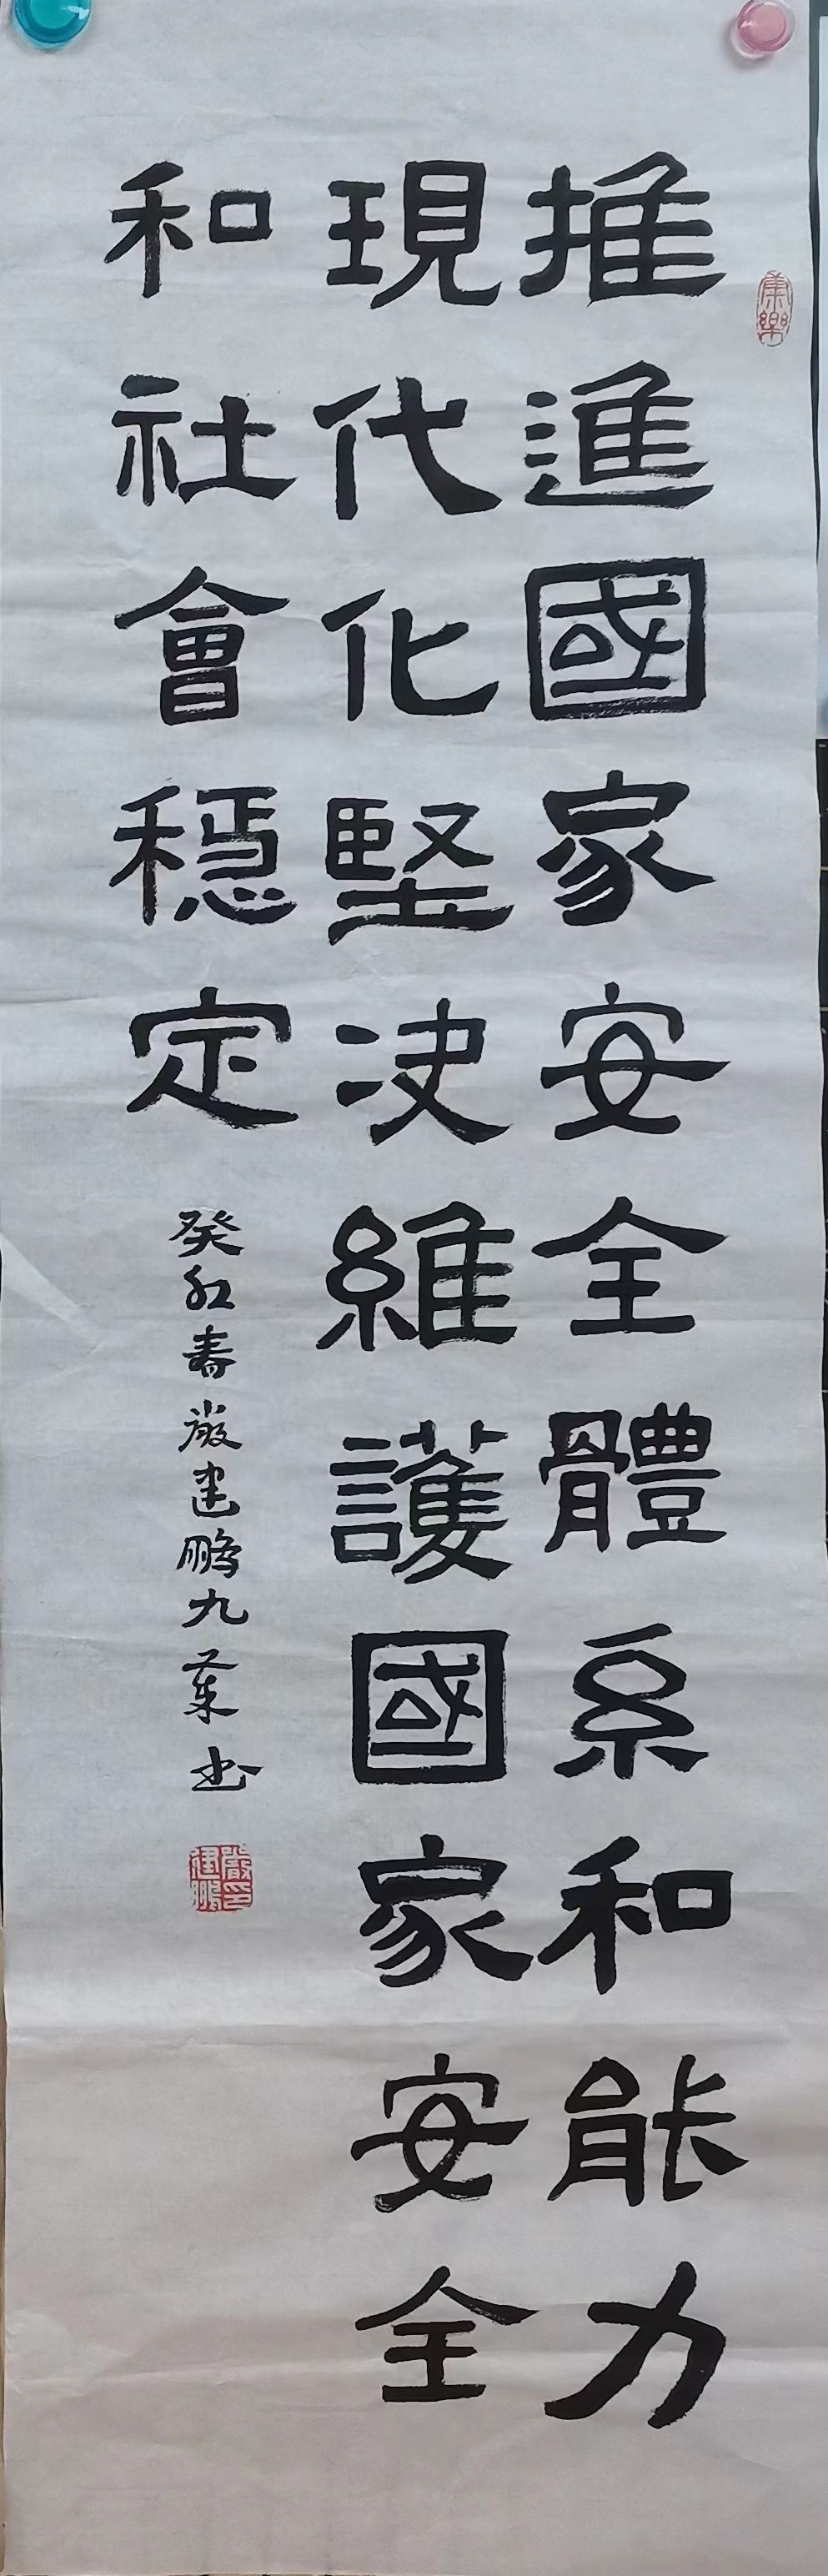 推進國家安全體系和能力
現代化堅决維護國家安全
和社會穩定
癸卯春嚴建鵬九葉书
康樂
嚴印建鵬